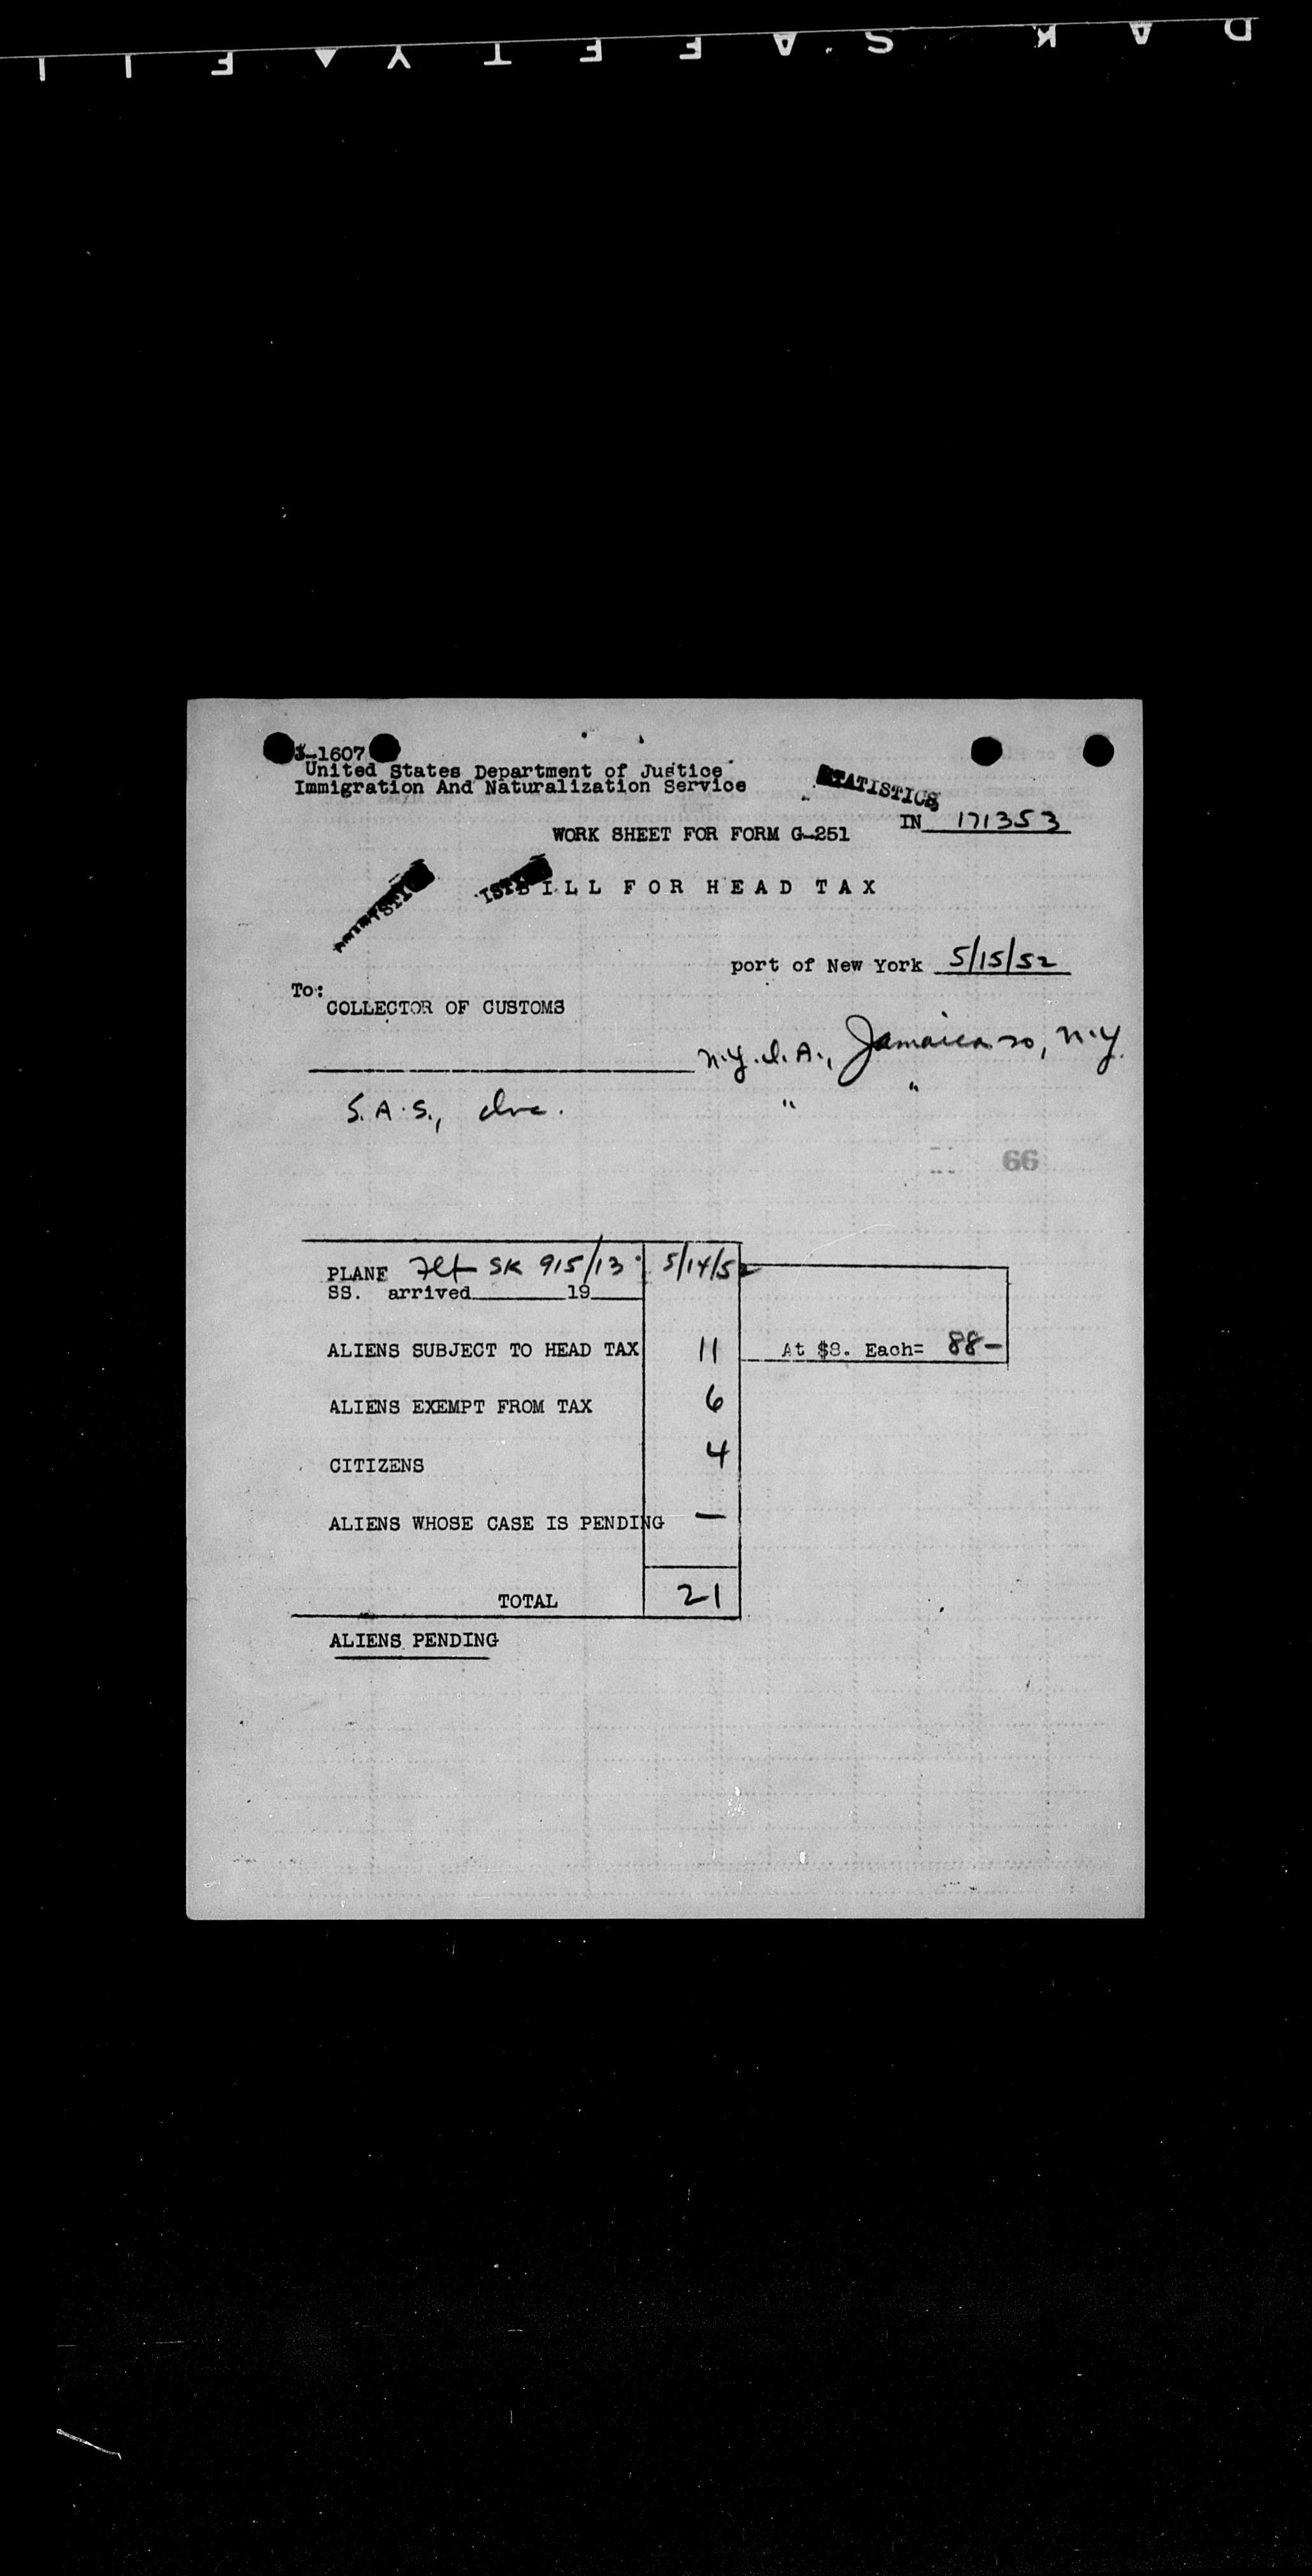 3-1607
United States Department of Justice
Immigration And Naturalization Service
STATISTICS
IN 171353
WORK SHEET FOR FORM G-251
BILL FOR HEAD TAX
port of New York 5/15/52
To:
COLLECTOR OF CUSTOMS
N.Y.I.A., Jamaica 20, N.Y.
S.A.S., Inc. " "
66
PLANE Flt SK 915/13 5/14/52
SS. arrived 19
ALIENS SUBJECT TO HEAD TAX 11 At $8. Each= 88-
ALIENS EXEMPT FROM TAX 6
CITIZENS 4
ALIENS WHOSE CASE IS PENDING —
TOTAL 21
ALIENS PENDING